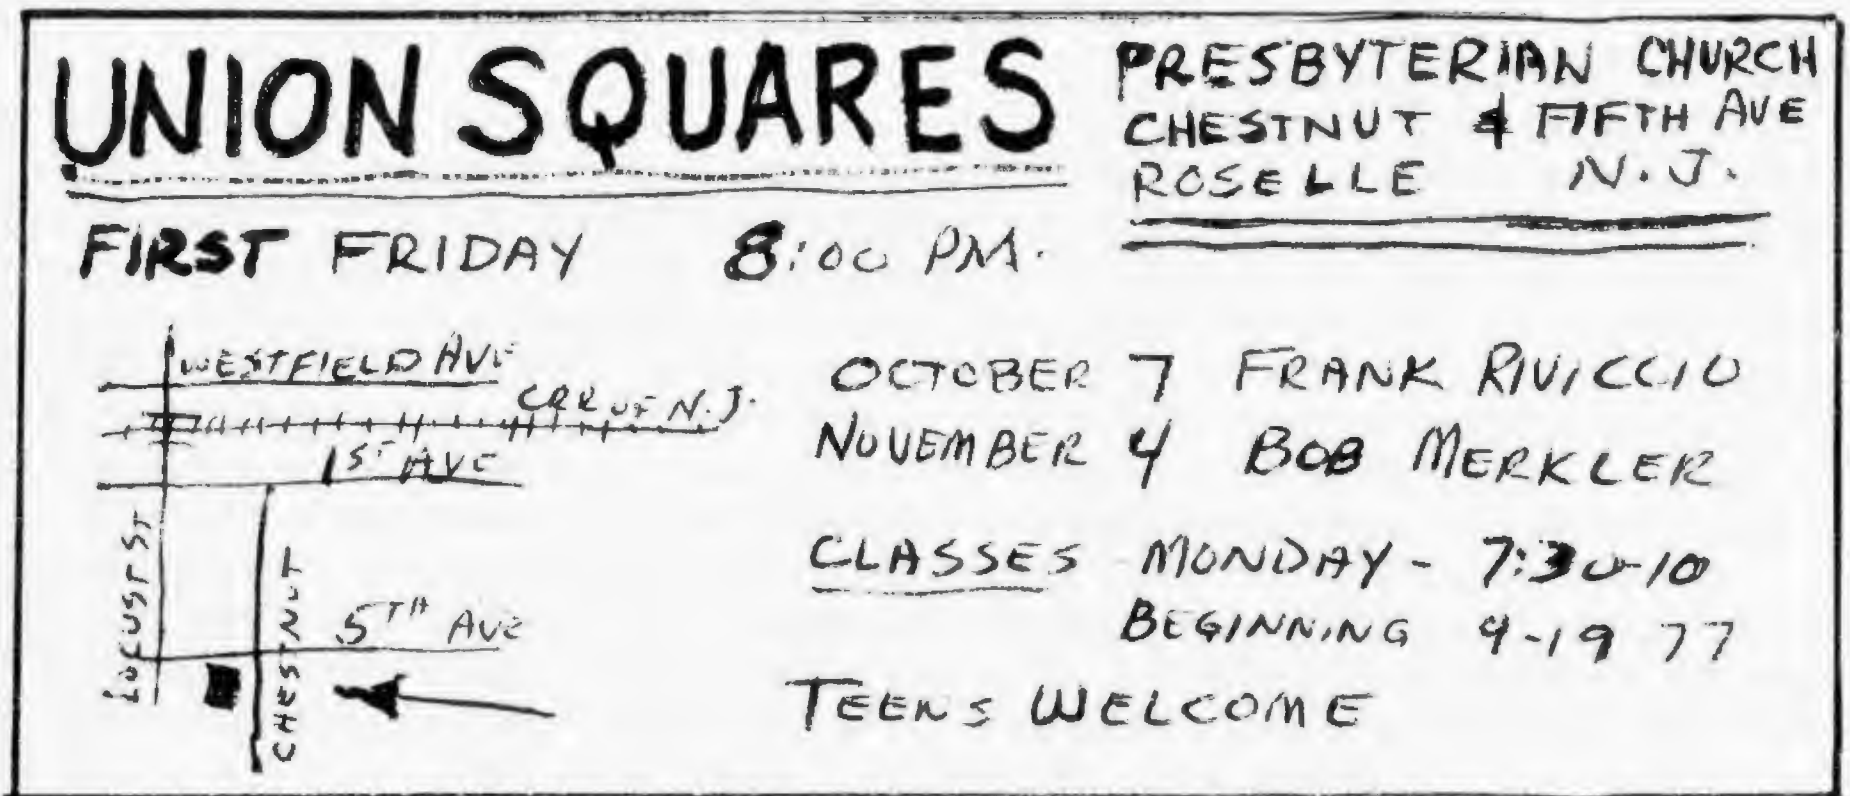 UNION SQUARES
PRESBYTERIAN CHURCH
CHESTNUT & FIFTH AVE
ROSELLE N.J.
FIRST FRIDAY 8:00 PM.
WESTFIELD AVE
CRR OF N.J.
1ST AVE
LOCUST ST
CHESTNUT
5TH AVE
OCTOBER 7 FRANK RIVICCIO
NOVEMBER 4 BOB MERKLER
CLASSES MONDAY - 7:30-10
BEGINNING 9-19 77
TEENS WELCOME